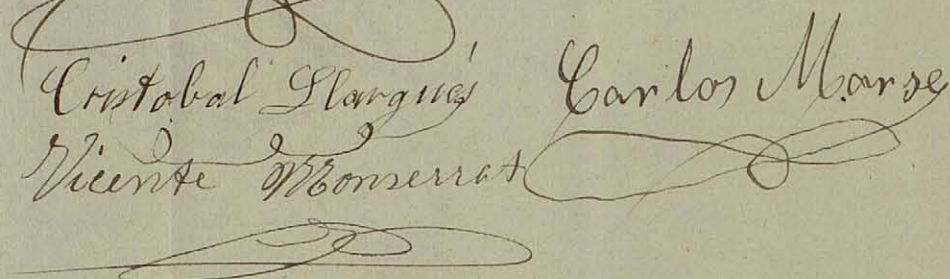 Cristobal Llargués
Carlos Marse
Vicente Monserrat